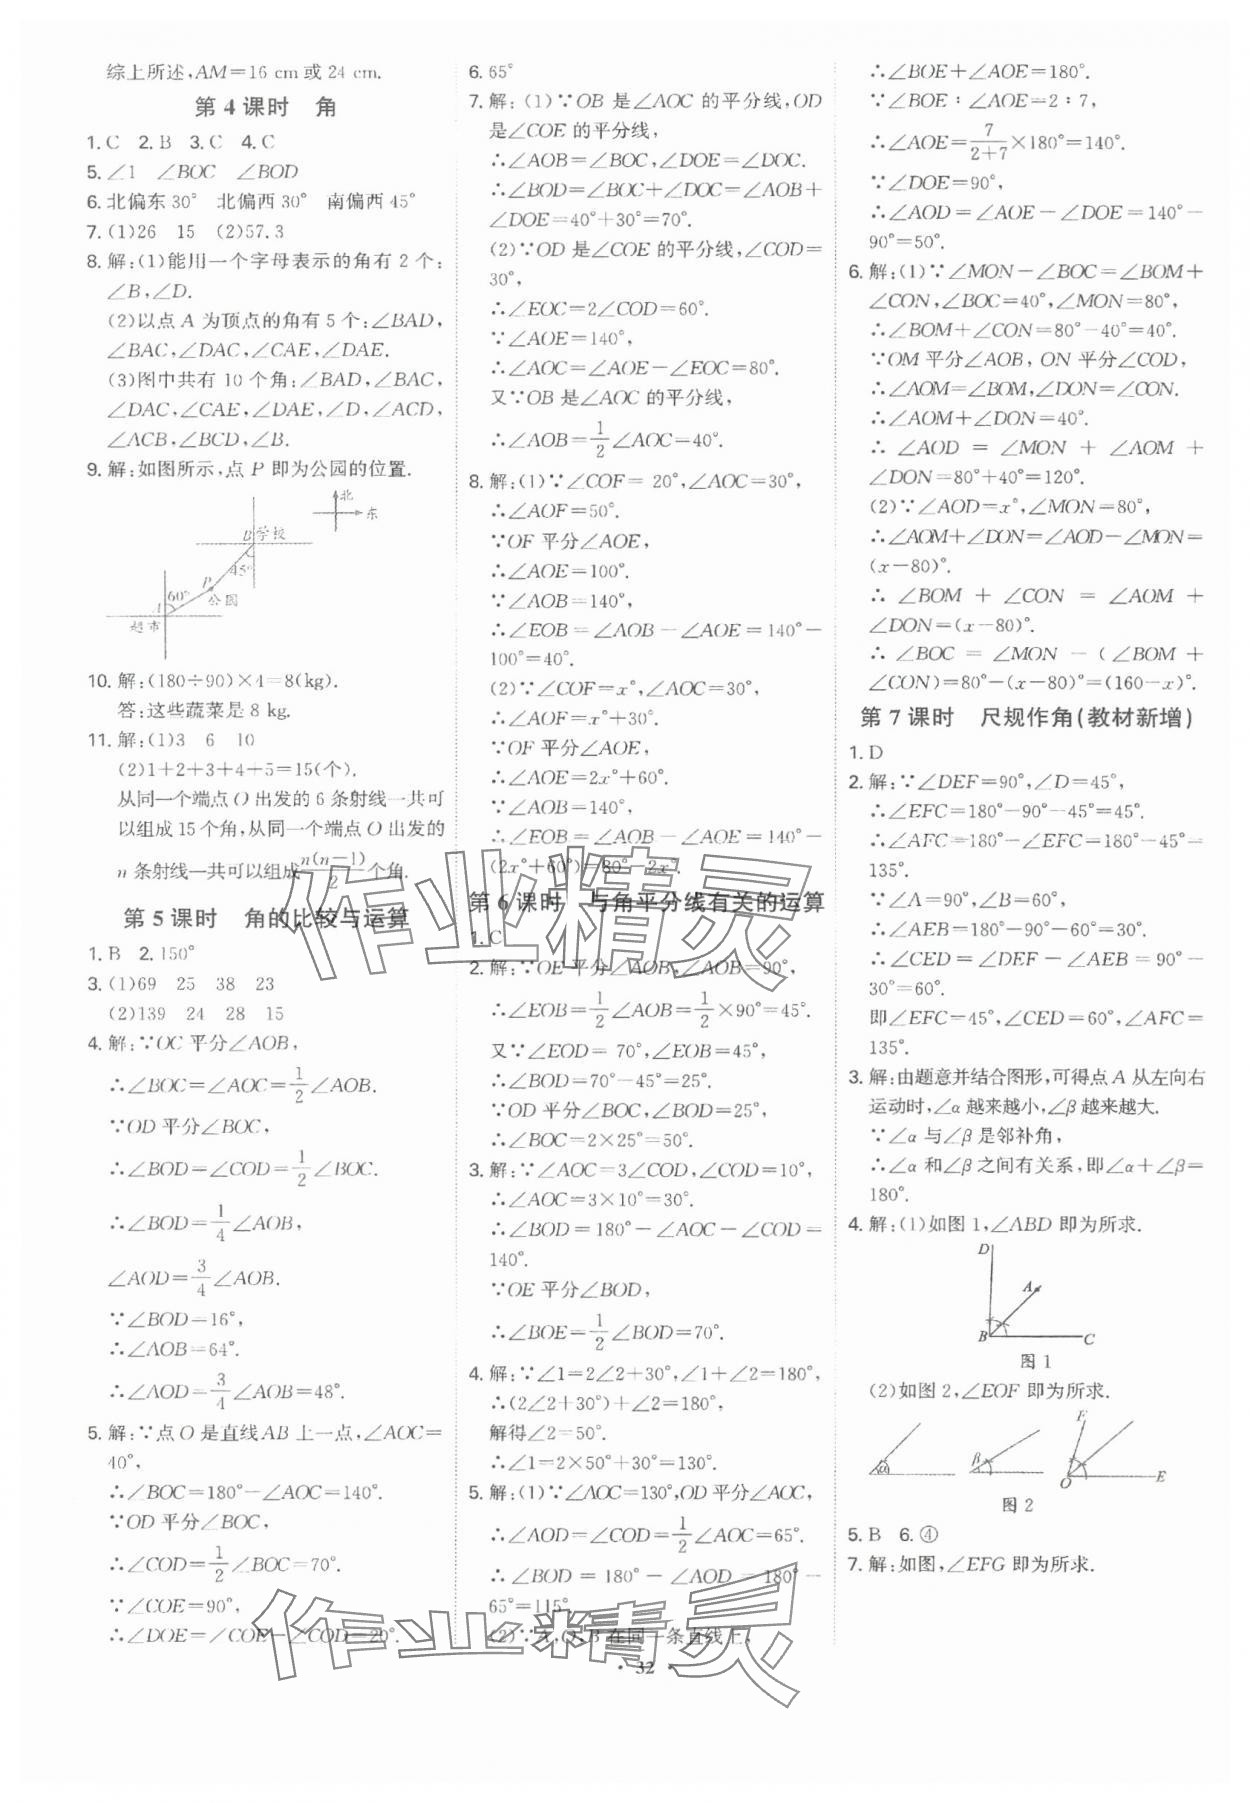 综上所述,AM=16 cm或24 cm.
第4课时 角
1.C 2.B 3.C 4.C
5.∠1 ∠BOC ∠BOD
6.北偏东30° 北偏西30° 南偏西45°
7.(1)26 15 (2)57.3
8.解:(1)能用一个字母表示的角有2个:
∠B,∠D.
(2)以点A为顶点的角有5个:∠BAD,
∠BAC,∠DAC,∠CAE,∠DAE.
(3)图中共有10个角:∠BAD,∠BAC,
∠DAC,∠CAE,∠DAE,∠D,∠ACD,
∠ACB,∠BCD,∠B.
9.解:如图所示,点P即为公园的位置.
北
东
B 学校
45°
P
60°
公园
A
超市
10.解:(180÷90)×4=8(kg).
答:这些蔬菜是8 kg.
11.解:(1)3 6 10
(2)1+2+3+4+5=15(个).
从同一个端点O出发的6条射线一共可
以组成15个角,从同一个端点O出发的
n条射线一共可以组成n(n-1)/2个角.
第5课时 角的比较与运算
1.B 2.150°
3.(1)69 25 38 23
(2)139 24 28 15
4.解:∵OC平分∠AOB,
∴∠BOC=∠AOC=1/2∠AOB.
∵OD平分∠BOC,
∴∠BOD=∠COD=1/2∠BOC.
∴∠BOD=1/4∠AOB,
∠AOD=3/4∠AOB.
∵∠BOD=16°,
∴∠AOB=64°.
∴∠AOD=3/4∠AOB=48°.
5.解:∵点O是直线AB上一点,∠AOC=
40°,
∴∠BOC=180°-∠AOC=140°.
∵OD平分∠BOC,
∴∠COD=1/2∠BOC=70°.
∵∠COE=90°,
∴∠DOE=∠COE-∠COD=20°.
6.65°
7.解:(1)∵OB是∠AOC的平分线,OD
是∠COE的平分线,
∴∠AOB=∠BOC,∠DOE=∠DOC.
∴∠BOD=∠BOC+∠DOC=∠AOB+
∠DOE=40°+30°=70°.
(2)∵OD是∠COE的平分线,∠COD=
30°,
∴∠EOC=2∠COD=60°.
∵∠AOE=140°,
∴∠AOC=∠AOE-∠EOC=80°.
又∵OB是∠AOC的平分线,
∴∠AOB=1/2∠AOC=40°.
8.解:(1)∵∠COF=20°,∠AOC=30°,
∴∠AOF=50°.
∵OF平分∠AOE,
∴∠AOE=100°.
∵∠AOB=140°,
∴∠EOB=∠AOB-∠AOE=140°-
100°=40°.
(2)∵∠COF=x°,∠AOC=30°,
∴∠AOF=x°+30°.
∵OF平分∠AOE,
∴∠AOE=2x°+60°.
∵∠AOB=140°,
∴∠EOB=∠AOB-∠AOE=140°-
(2x°+60°)=80°-2x°.
第6课时 与角平分线有关的运算
1.C
2.解:∵OE平分∠AOB,∠AOB=90°,
∴∠EOB=1/2∠AOB=1/2×90°=45°.
又∵∠EOD=70°,∠EOB=45°,
∴∠BOD=70°-45°=25°.
∵OD平分∠BOC,∠BOD=25°,
∴∠BOC=2×25°=50°.
3.解:∵∠AOC=3∠COD,∠COD=10°,
∴∠AOC=3×10°=30°.
∴∠BOD=180°-∠AOC-∠COD=
140°.
∵OE平分∠BOD,
∴∠BOE=1/2∠BOD=70°.
4.解:∵∠1=2∠2+30°,∠1+∠2=180°,
∴(2∠2+30°)+∠2=180°,
解得∠2=50°.
∴∠1=2×50°+30°=130°.
5.解:(1)∵∠AOC=130°,OD平分∠AOC,
∴∠AOD=∠COD=1/2∠AOC=65°.
∴∠BOD=180°-∠AOD=180°-
65°=115°.
(2)∵A,O,B在同一条直线上,
∴∠BOE+∠AOE=180°.
∵∠BOE:∠AOE=2:7,
∴∠AOE=7/(2+7)×180°=140°.
∵∠DOE=90°,
∴∠AOD=∠AOE-∠DOE=140°-
90°=50°.
6.解:(1)∵∠MON-∠BOC=∠BOM+
∠CON,∠BOC=40°,∠MON=80°,
∴∠BOM+∠CON=80°-40°=40°.
∵OM平分∠AOB,ON平分∠COD,
∴∠AOM=∠BOM,∠DON=∠CON.
∴∠AOM+∠DON=40°.
∴∠AOD=∠MON+∠AOM+
∠DON=80°+40°=120°.
(2)∵∠AOD=x°,∠MON=80°,
∴∠AOM+∠DON=∠AOD-∠MON=
(x-80)°.
∴∠BOM+∠CON=∠AOM+
∠DON=(x-80)°.
∴∠BOC=∠MON-(∠BOM+
∠CON)=80°-(x-80)°=(160-x)°.
第7课时 尺规作角(教材新增)
1.D
2.解:∵∠DEF=90°,∠D=45°,
∴∠EFC=180°-90°-45°=45°.
∴∠AFC=180°-∠EFC=180°-45°=
135°.
∵∠A=90°,∠B=60°,
∴∠AEB=180°-90°-60°=30°.
∴∠CED=∠DEF-∠AEB=90°-
30°=60°.
即∠EFC=45°,∠CED=60°,∠AFC=
135°.
3.解:由题意并结合图形,可得点A从左向右
运动时,∠α越来越小,∠β越来越大.
∵∠α与∠β是邻补角,
∴∠α和∠β之间有关系,即∠α+∠β=
180°.
4.解:(1)如图1,∠ABD即为所求.
D
A
B
C
图1
(2)如图2,∠EOF即为所求.
F
α
β
O
E
图2
5.B 6.④
7.解:如图,∠EFG即为所求.
·32·
作业精灵
作业精灵